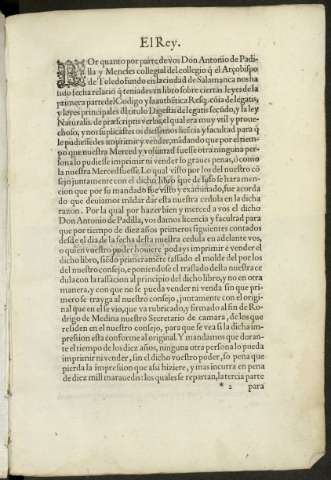 El Rey.
POr quanto por parte de vos Don Antonio de Padi-
lla y Meneses collegial del collegio q̃ el Arçobispo
de Toledo fundo en la ciudad de Salamanca nos ha
sido fecha relaciõ q̃ teniades vn libro sobre ciertas leyes de la
primera parte del Codigo y la authẽtica Res q̃,
y leyes principales del titulo Digestis fecũdo, y la ley
Naturalis de præscriptis verbis, el qual era muy vtil y proue-
choso, y nos suplicastes os diessemos licẽcia y facultad para q̃
le pudiessedes imprimir y vender, mãdando que por el tiem-
po que nuestra Merced y volũtad fuesse otra ninguna perso-
na lo pudiesse imprimir ni vender so graues penas, o como
la nuestra Merced fuesse. Lo qual visto por los del nuestro cõ
sejo juntamente con el dicho libro que de suso se hara men-
cion que por su mandado fue visto y examinado, fue acorda
do que deuiamos mãdar dar esta nuestra cedula en la dicha
razon. Por la qual por hazer bien y merced a vos el dicho
Don Antonio de Padilla, vos damos licencia y facultad para
que por tiempo de diez años primeros siguientes contados
desde el dia de la fecha desta nuestra cedula en adelante vos,
o quien vuestro poder houiere podays imprimir e vender el
dicho libro, siẽdo primeramẽte tassado el molde del por los
del nuestro consejo, e poniendose el traslado desta nuestra ce
dula con la tassacion al principio del dicho libro, y no en otra
manera, y con que no se pueda vender ni venda sin que pri-
mero se trayga al nuestro consejo, juntamente con el origi-
nal que en el se vio, que va rubricado, y firmado al fin de Ro-
drigo de Medina nuestro Secretario de camara, de los que
residen en el nuestro consejo, para que se vea si la dicha im-
pression esta conforme al original. Y mandamos que duran-
te el tiempo de los diez años, ninguna otra persona lo pueda
imprimir ni vender, sin el dicho vuestro poder, so pena que
pierda la impression que assi hiziere, y mas incurra en pena
de diez mill marauedis: los quales se repartan, la tercia parte
* 2 para